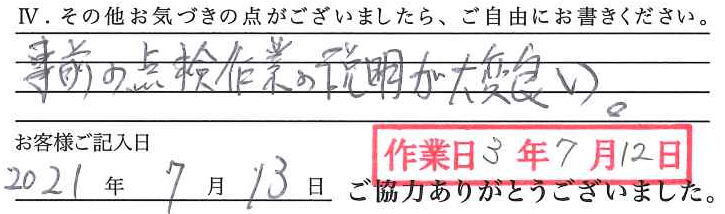 Ⅳ．その他お気づきの点がございましたら、ご自由にお書きください。
事前の点検作業の説明が大変良い。
お客様ご記入日
作業日3年7月12日
2021年7月13日
ご協力ありがとうございました。